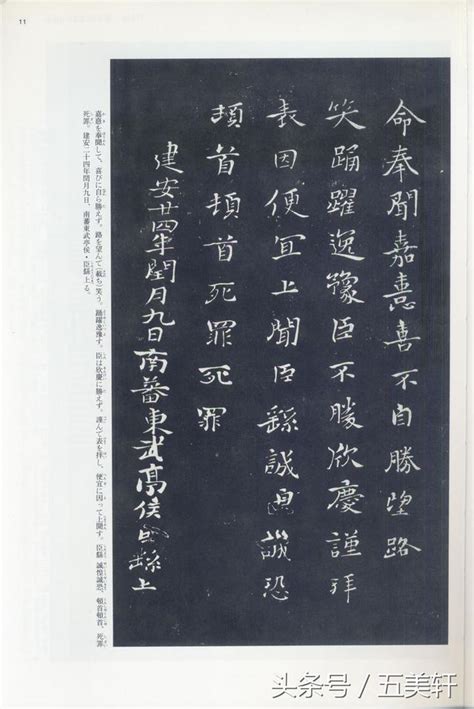 11
命奉聞嘉憙喜不自勝望路
笑踊躍逸豫臣不勝欣慶謹拜
表因便宜上聞臣繇誠惶誠恐
頓首頓首死罪死罪
建安廿四年閏月九日南蕃東武亭侯臣繇上
嘉憙を奉聞して、喜びに自ら勝えず。路を望んで載ち笑う。踊躍逸豫す。臣は欣慶に勝えず。謹んで表を拝し、便宜に因って上聞す。臣繇 誠惶誠恐、頓首頓首、死罪
死罪。建安二十四年閏月九日、南蕃東武亭侯・臣繇上る。
头条号/五美轩